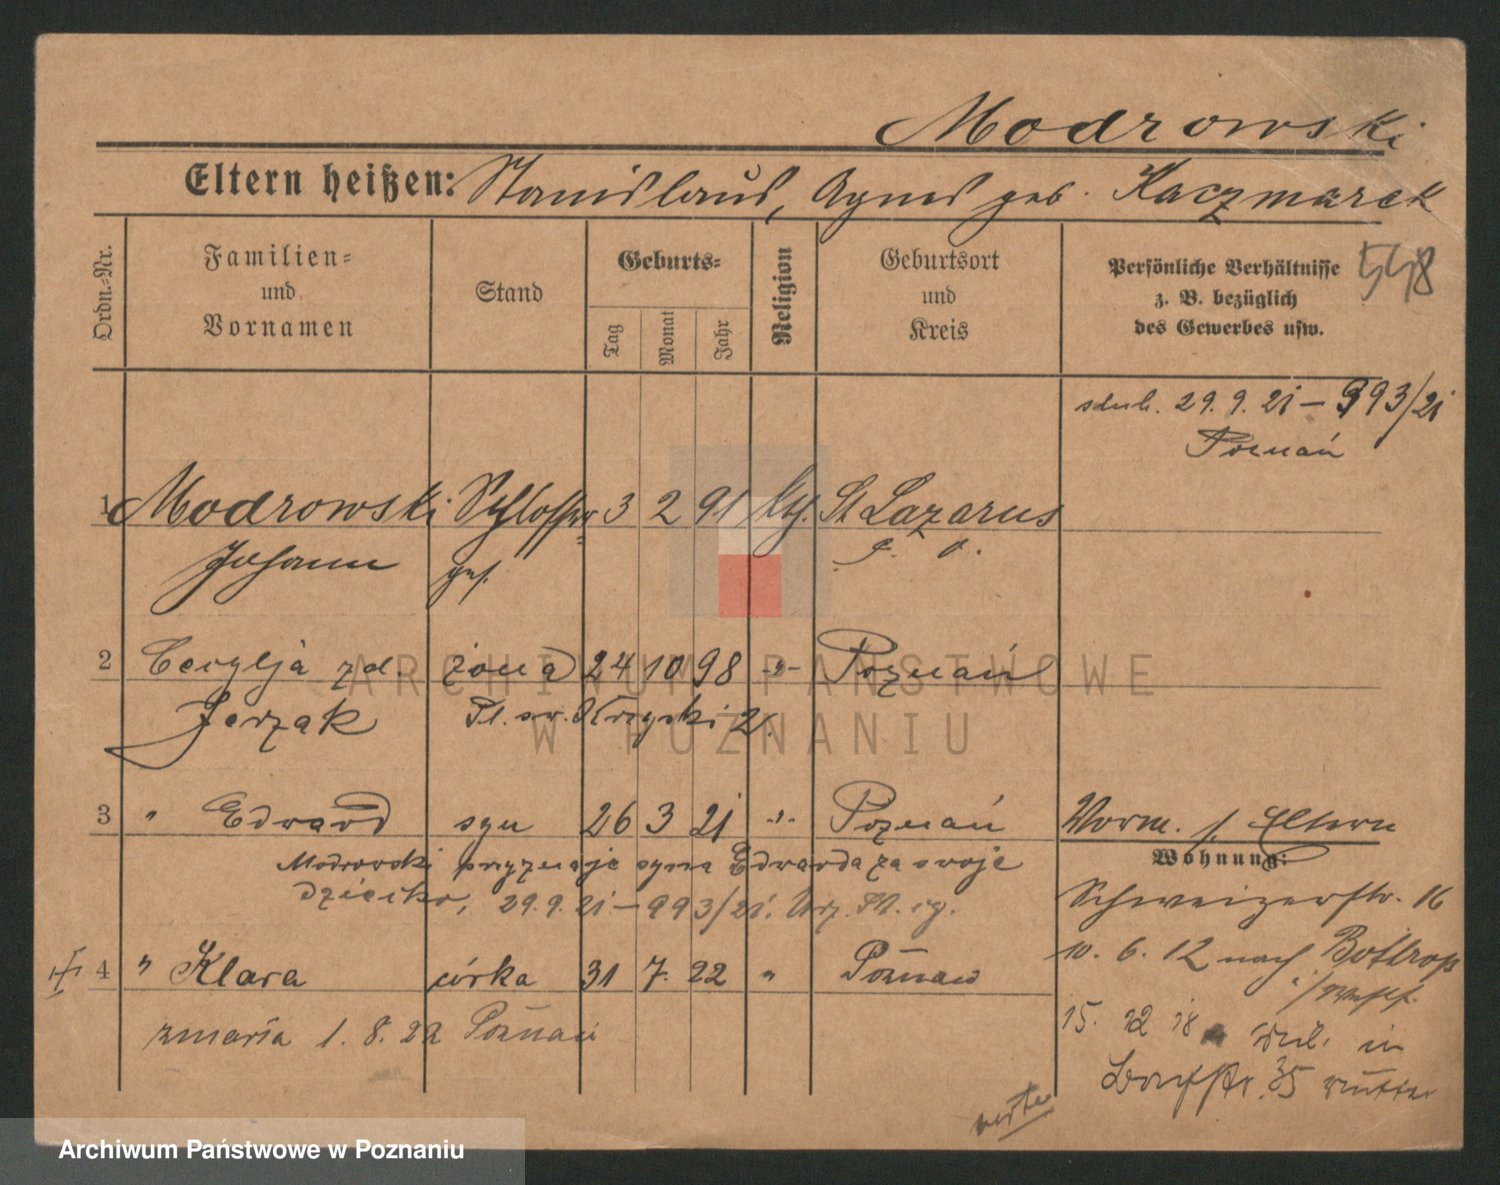 Modrowski
Eltern heißen: Stanislaus, Agnes geb. Kaczmarek
Ordn.-Nr.
Familien- und Vornamen
Stand
Geburts-
Tag
Monat
Jahr
Religion
Geburtsort und Kreis
Persönliche Verhältnisse
z. B. bezüglich
des Gewerbes usw.
558
29. 9. 21 – 993/21
Poznań
1 Modrowski Schlosser 3 2 91 kth. St Lazarus
Johann ges.
2 Cecylja zd. żona 24 10 98 -"- Poznań
Jerzak Pl. św. Krzyski 2.
3 " Edward syn 26 3 21 -"- Poznań
Modrowski przyznaje syna Edwarda za swoje
dziecko, 29. 9. 21 – 993/21. Urz. St. cy.
4 " Klara córka 31 7. 22 " Poznań
zmarła 1. 8. 22 Poznań
Vorm. s. Eltern
Wohnung:
Schweizerstr. 16
10. 6. 12 nach Bottrop
i/Westf.
15. 12 18 in
35 Mutter
verte
ARCHIWUM PAŃSTWOWE
W POZNANIU
Archiwum Państwowe w Poznaniu